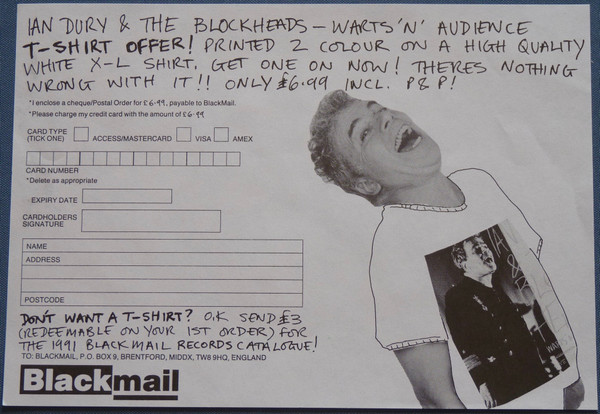 IAN DURY & THE BLOCKHEADS - WARTS 'N' AUDIENCE
T-SHIRT OFFER! PRINTED 2 COLOUR ON A HIGH QUALITY
WHITE X-L SHIRT. GET ONE ON NOW! THERES NOTHING
WRONG WITH IT!! ONLY £6.99 INCL. P&P!
*I enclose a cheque/Postal Order for £6.99, payable to BlackMail.
*Please charge my credit card with the amount of £6.99
CARD TYPE
(TICK ONE) ACCESS/MASTERCARD VISA AMEX
CARD NUMBER
*Delete as appropriate
EXPIRY DATE
CARDHOLDERS
SIGNATURE
NAME
ADDRESS
POSTCODE
DON'T WANT A T-SHIRT? O.K SEND £3
(REDEEMABLE ON YOUR 1ST ORDER) FOR
THE 1991 BLACKMAIL RECORDS CATALOGUE!
TO: BLACKMAIL, P.O. BOX 9, BRENTFORD, MIDDX, TW8 9HQ, ENGLAND
Blackmail